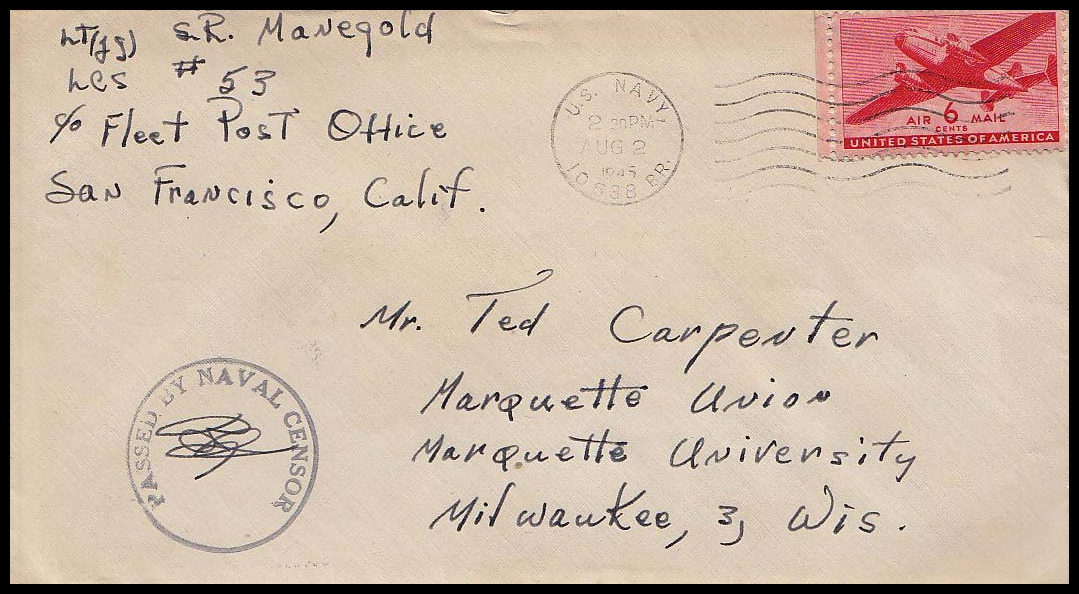 Lt(jg) S.R. Manegold
LCS # 53
c/o Fleet Post Office
San Francisco, Calif.
U.S. NAVY
2 30PM
AUG 2
1945
10538 BR.
AIR 6 MAIL
CENTS
UNITED STATES OF AMERICA
Mr. Ted Carpenter
Marquette Union
Marquette University
Milwaukee, 3, Wis.
PASSED BY NAVAL CENSOR